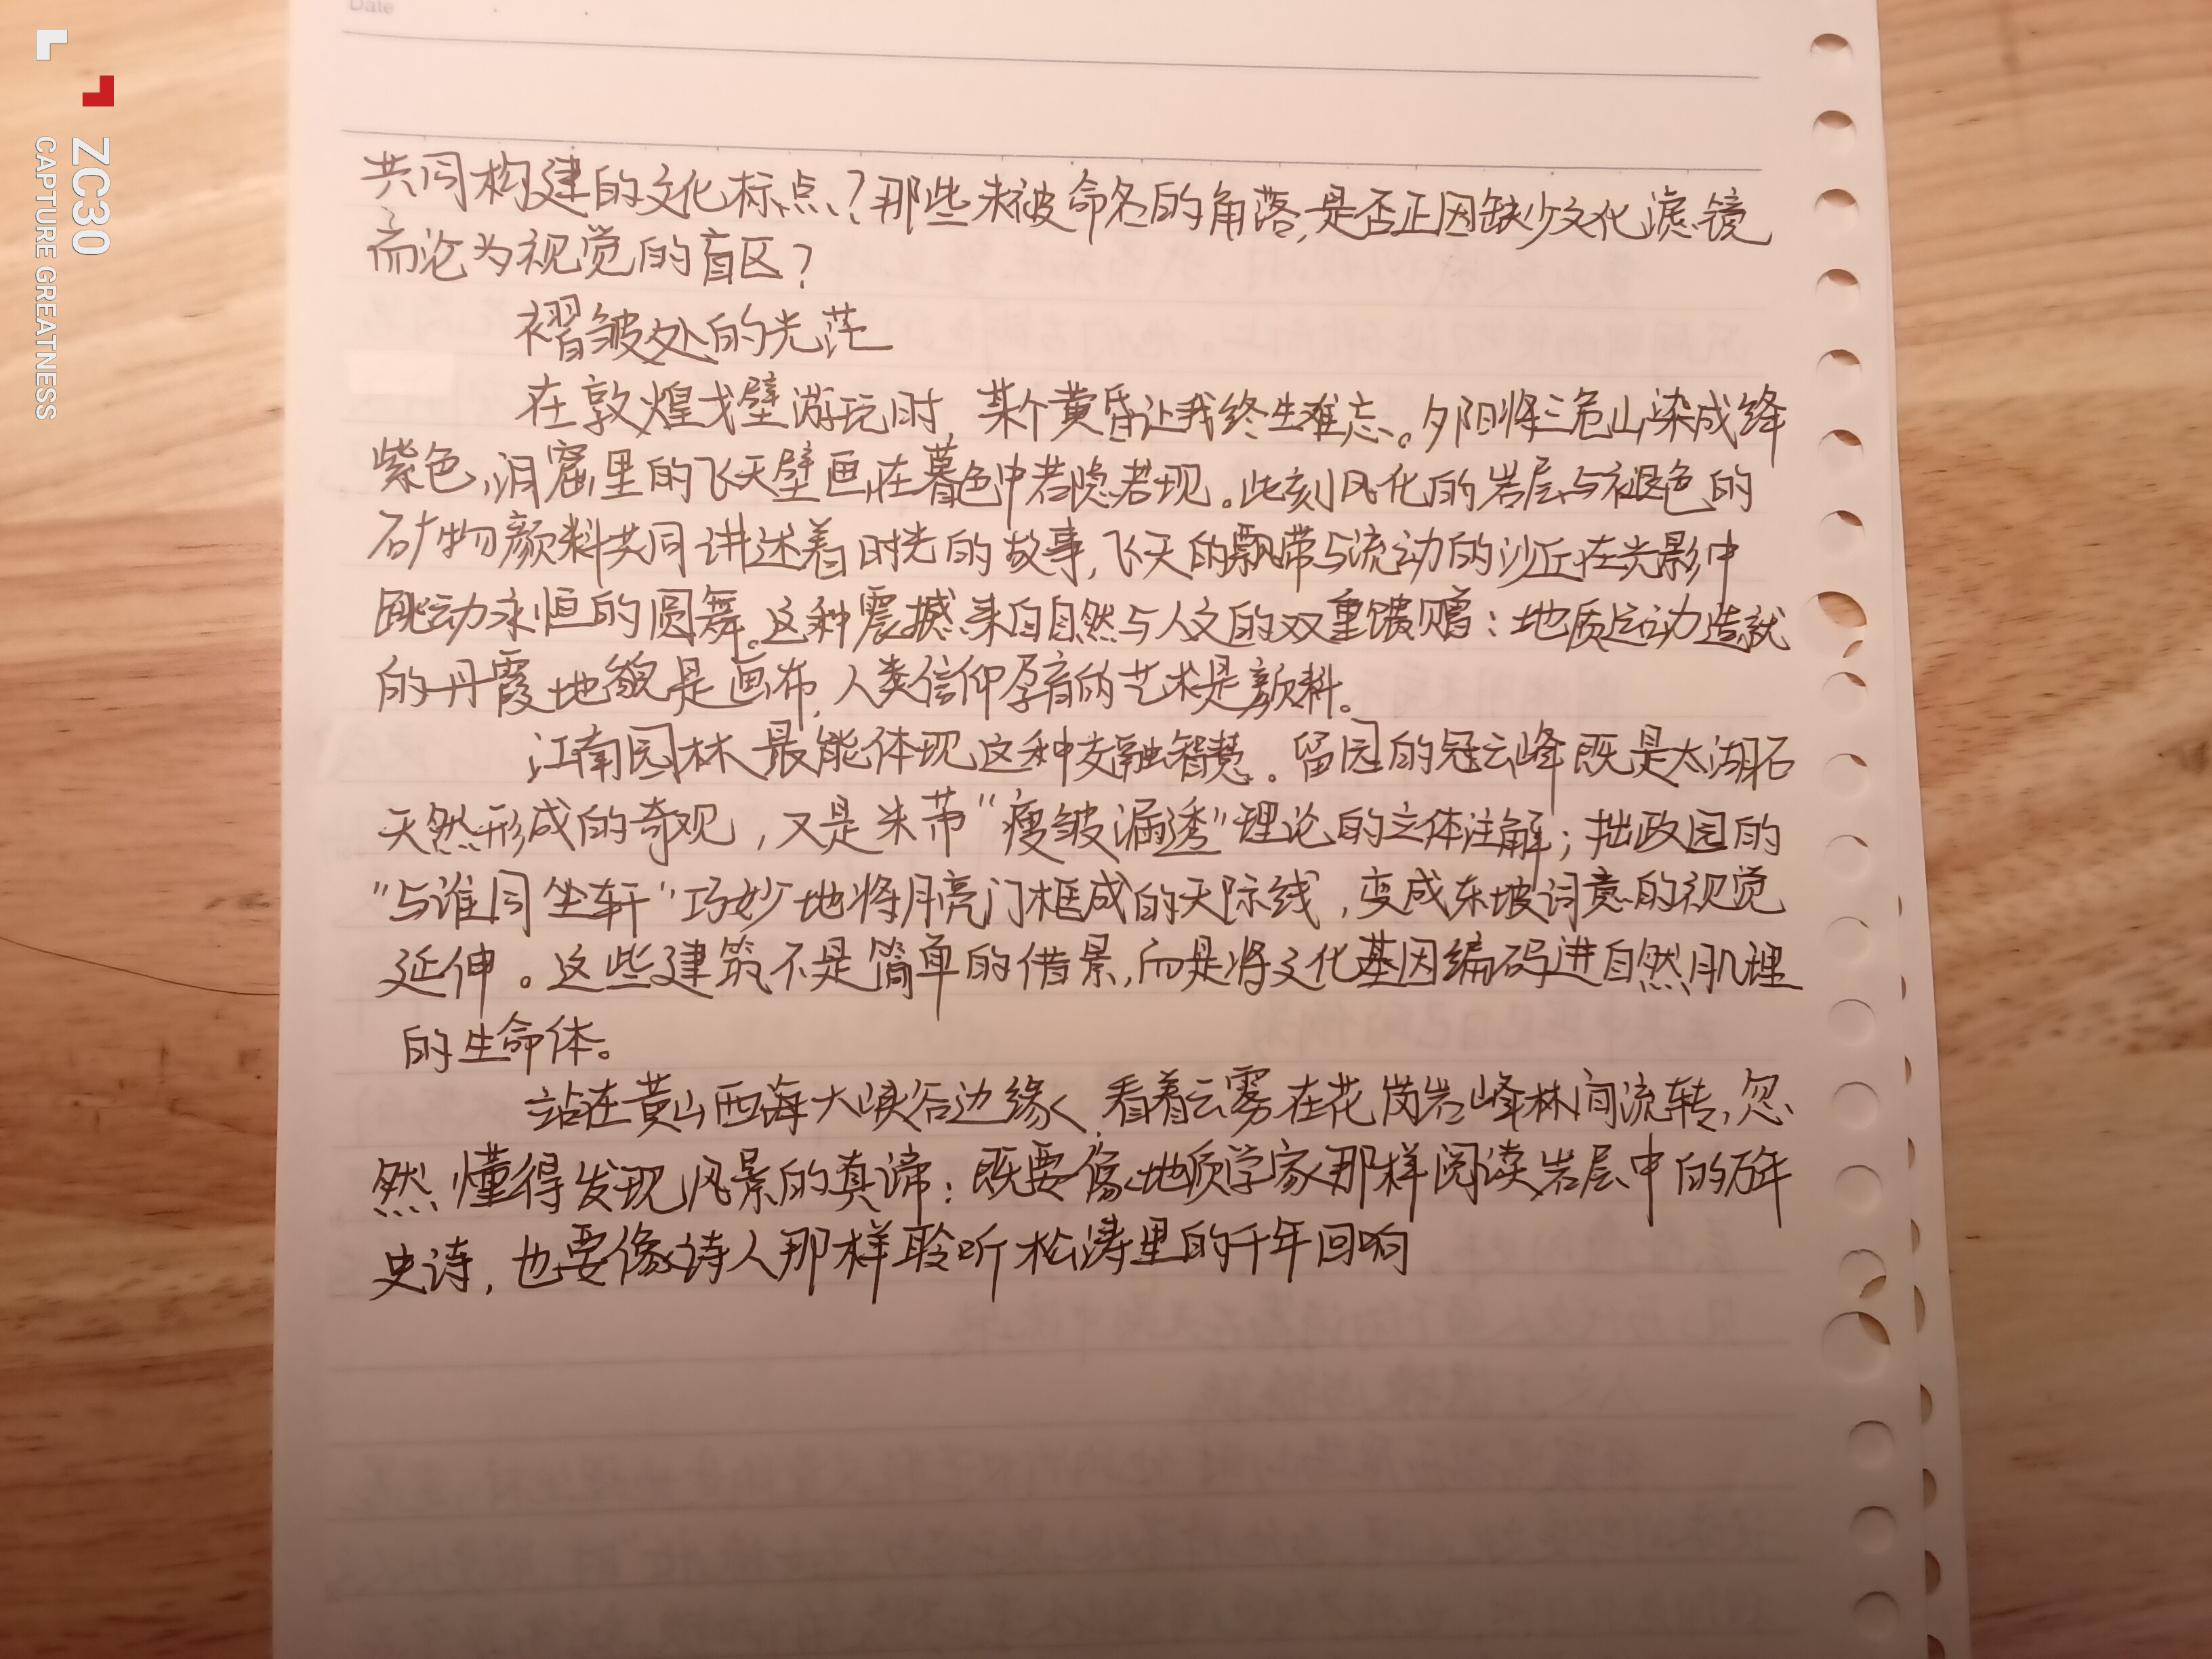 Date
共同构建的文化标点？那些未被命名的角落，是否正因缺少文化滤镜
而沦为视觉的盲区？
褶皱处的光茫
在敦煌戈壁游玩时，某个黄昏让我终生难忘。夕阳将三危山染成绛
紫色，洞窟里的飞天壁画在暮色中若隐若现。此刻风化的岩层与褪色的
矿物颜料共同讲述着时光的故事，飞天的飘带与流动的沙丘在光影中
跳动永恒的圆舞。这种震撼来自自然与人文的双重馈赠：地质运动造就
的丹霞地貌是画布，人类信仰孕育的艺术是颜料。
江南园林最能体现这种交融智慧。留园的冠云峰既是太湖石
天然形成的奇观，又是米芾“瘦皱漏透”理论的立体注解；拙政园的
“与谁同坐轩”巧妙地将月亮门框成的天际线，变成东坡词意的视觉
延伸。这些建筑不是简单的借景，而是将文化基因编码进自然肌理
的生命体。
站在黄山西海大峡谷边缘，看着云雾在花岗岩峰林间流转，忽
然懂得发现风景的真谛：既要像地质学家那样阅读岩层中的万年
史诗，也要像诗人那样聆听松涛里的千年回响
ZC30
CAPTURE GREATNESS